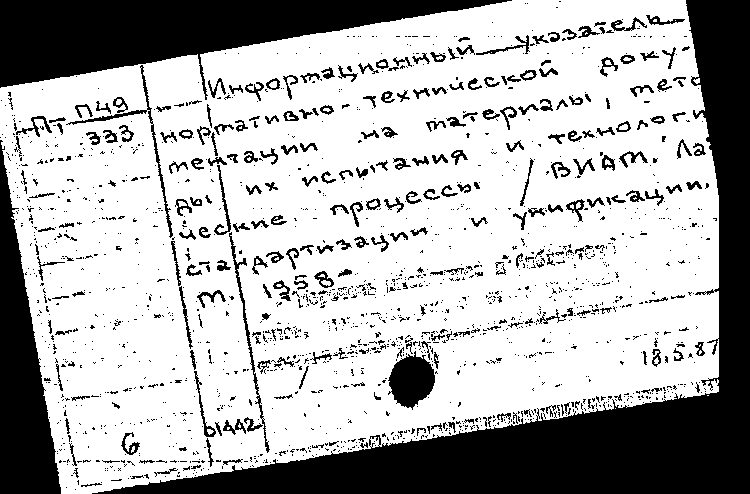 Информационный указатель
Пт П49
333
нормативно-технической доку-
ментации на материалы, мето
ды их испытания и технологи
ческие процессы / ВИАМ. Ла
стандартизации и унификации.
М. 1958-
18.5.87
01442
6